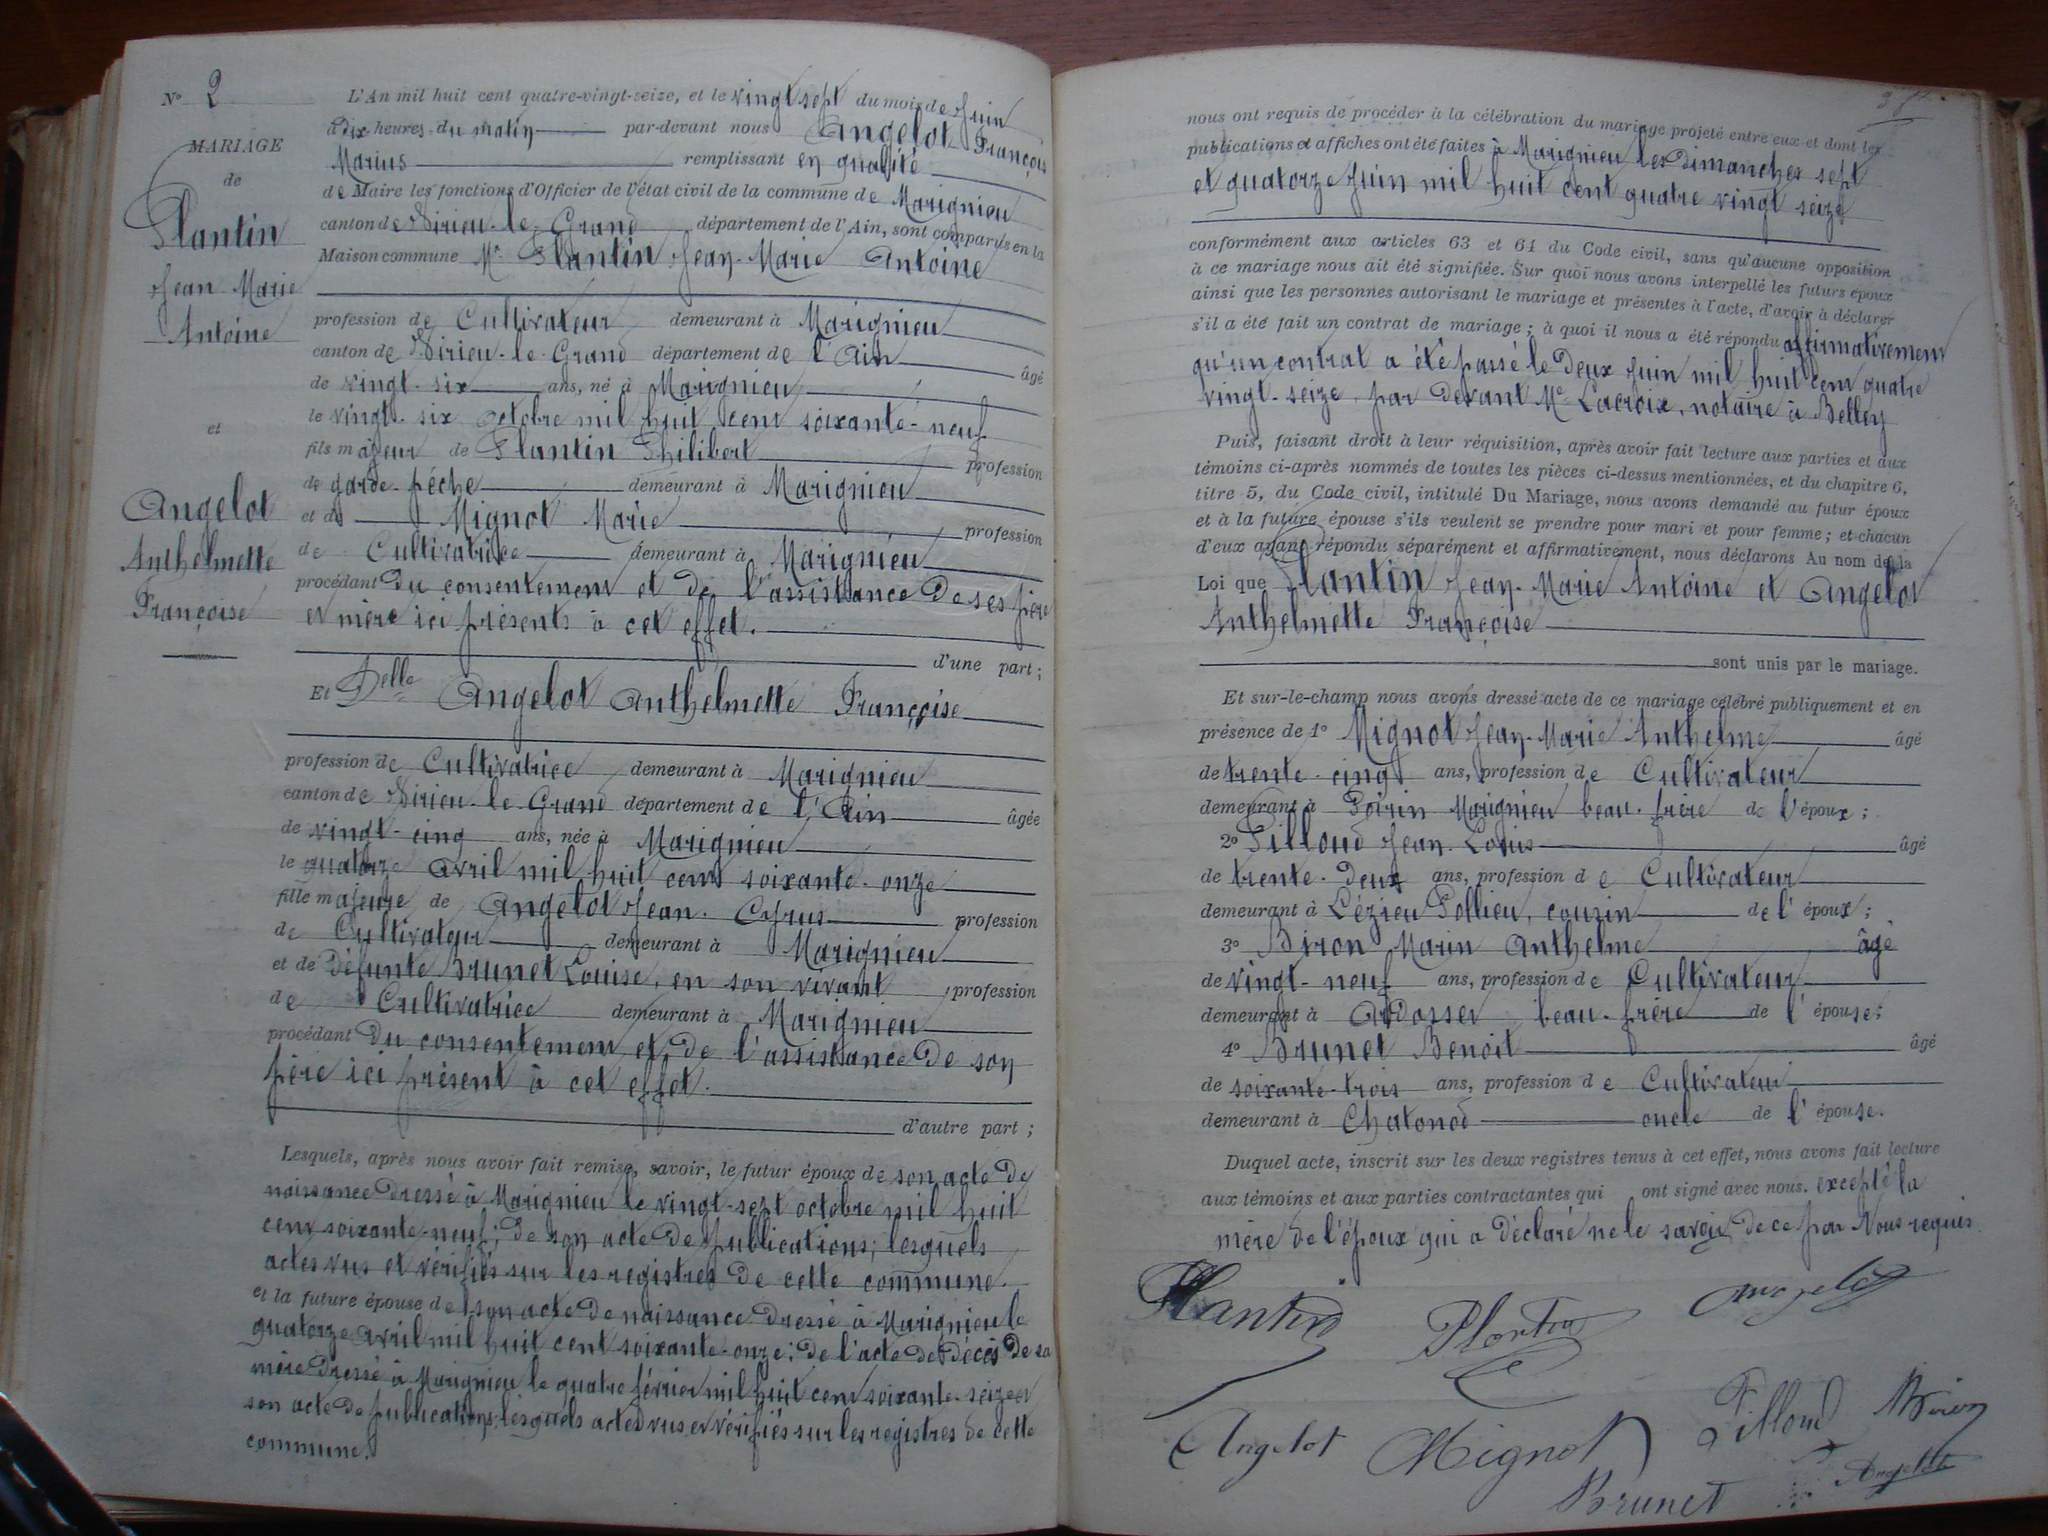 N° 2
MARIAGE
de
Plantin
Jean Marie
Antoine
et
Angelot
Anthelmette
Françoise
L'An mil huit cent quatre-vingt-seize, et le vingt sept du mois de Juin
à dix heures du matin par-devant nous Angelot François
Marius remplissant en qualité
de Maire les fonctions d'Officier de l'état civil de la commune de Marignieu
canton de Virieu-le-Grand département de l'Ain, sont comparus en la
Maison commune Mr Plantin Jean-Marie Antoine
profession de Cultivateur demeurant à Marignieu
canton de Virieu-le-Grand département de l'Ain âgé
de vingt-six ans, né à Marignieu
le vingt-six octobre mil huit cent soixante-neuf
fils majeur de Plantin Philibert profession
de garde-pêche demeurant à Marignieu
et de Mignot Marie profession
de Cultivatrice demeurant à Marignieu
procédant du consentement et de l'assistance de ses père
et mère ici présents à cet effet.
d'une part ;
Et Delle Angelot Anthelmette Françoise
profession de Cultivatrice demeurant à Marignieu
canton de Virieu-le-Grand département de l'Ain âgée
de vingt-cinq ans, née à Marignieu
le quatorze avril mil huit cent soixante-onze
fille majeure de Angelot Jean-Cyrus profession
de Cultivateur demeurant à Marignieu
et de défunte Brunet Louise, en son vivant profession
de Cultivatrice demeurant à Marignieu
procédant du consentement et de l'assistance de son
père ici présent à cet effet.
d'autre part ;
Lesquels, après nous avoir fait remise, savoir, le futur époux de son acte de
naissance dressé à Marignieu le vingt-sept octobre mil huit
cent soixante-neuf ; de son acte de publications ; lesquels
actes vus et vérifiés sur les registres de cette commune.
et la future épouse de son acte de naissance dressé à Marignieu le
quatorze avril mil huit cent soixante-onze ; de l'acte de décès de sa
mère dressé à Marignieu le quatre février mil huit cent soixante-seize et
son acte de publications ; lesquels actes vus et vérifiés sur les registres de cette
commune.
nous ont requis de procéder à la célébration du mariage projeté entre eux et dont les
publications et affiches ont été faites à Marignieu les Dimanches sept
et quatorze Juin mil huit cent quatre vingt seize
conformément aux articles 63 et 64 du Code civil, sans qu'aucune opposition
à ce mariage nous ait été signifiée. Sur quoi nous avons interpellé les futurs époux
ainsi que les personnes autorisant le mariage et présentes à l'acte, d'avoir à déclarer
s'il a été fait un contrat de mariage ; à quoi il nous a été répondu affirmativement
qu'un contrat a été passé le deux Juin mil huit cent quatre
vingt-seize, par devant Me Lacroix, notaire à Belley
Puis, faisant droit à leur réquisition, après avoir fait lecture aux parties et aux
témoins ci-après nommés de toutes les pièces ci-dessus mentionnées, et du chapitre 6,
titre 5, du Code civil, intitulé Du Mariage, nous avons demandé au futur époux
et à la future épouse s'ils veulent se prendre pour mari et pour femme ; et chacun
d'eux ayant répondu séparément et affirmativement, nous déclarons Au nom de la
Loi que Plantin Jean-Marie Antoine et Angelot
Anthelmette Françoise
sont unis par le mariage.
Et sur-le-champ nous avons dressé acte de ce mariage célébré publiquement et en
présence de 1° Mignot Jean-Marie Anthelme âgé
de trente-cinq ans, profession de Cultivateur
demeurant à Poirin Marignieu beau-frère de l'époux ;
2° Tilloud Jean-Louis âgé
de trente-deux ans, profession de Cultivateur
demeurant à Lézieu Pollieu, cousin de l'époux ;
3° Biron Marin Anthelme âgé
de vingt-neuf ans, profession de Cultivateur
demeurant à Ardosset beau-frère de l'épouse ;
4° Brunet Benoit âgé
de soixante-trois ans, profession de Cultivateur
demeurant à Chatonod oncle de l'épouse.
Duquel acte, inscrit sur les deux registres tenus à cet effet, nous avons fait lecture
aux témoins et aux parties contractantes qui ont signé avec nous. excepté la
mère de l'époux qui a déclaré ne le savoir de ce par Nous requis
Plantin Plantin Angelot
Angelot Mignot Tilloud Biron
Brunet Angelot